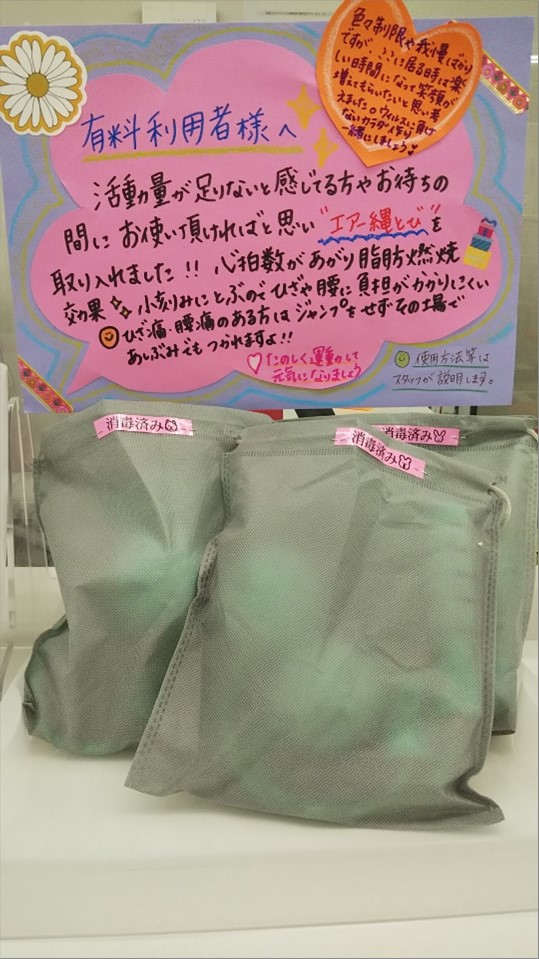 色々制限や我慢ばかり
ですが、ここに居る時は楽
しい時間になって笑顔が
増えてもらいたいと思い考
えました。ウィルスに負け
ないカラダ作りを
一緒にしましょう♥
有料利用者様へ
活動量が足りないと感じてる方やお待ちの
間に お使い頂ければと思い"エアー縄とび"を
取り入れました!! 心拍数があがり脂肪燃焼
効果✨小刻みにとぶのでひざや腰に負担がかかりにくい
ひざ痛・腰痛のある方は ジャンプをせずその場で
あしぶみでもつかれますよ!!
♡たのしく運動して
元気になりましょう
使用方法等は
スタッフが説明します。
消毒済み
消毒済み
消毒済み